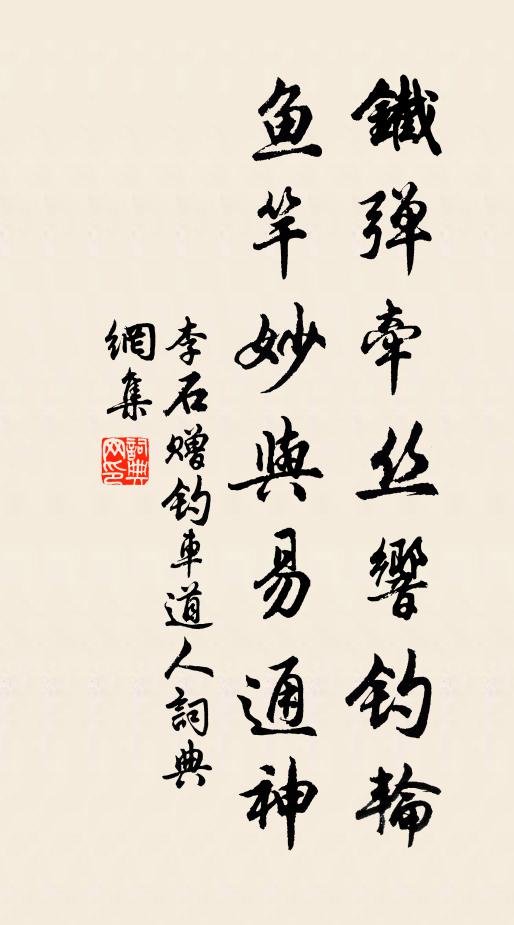 鐵弹牵丝響钓輪
鱼竿妙與易通神
李石赠钓車道人詞典
網集
詞典網印